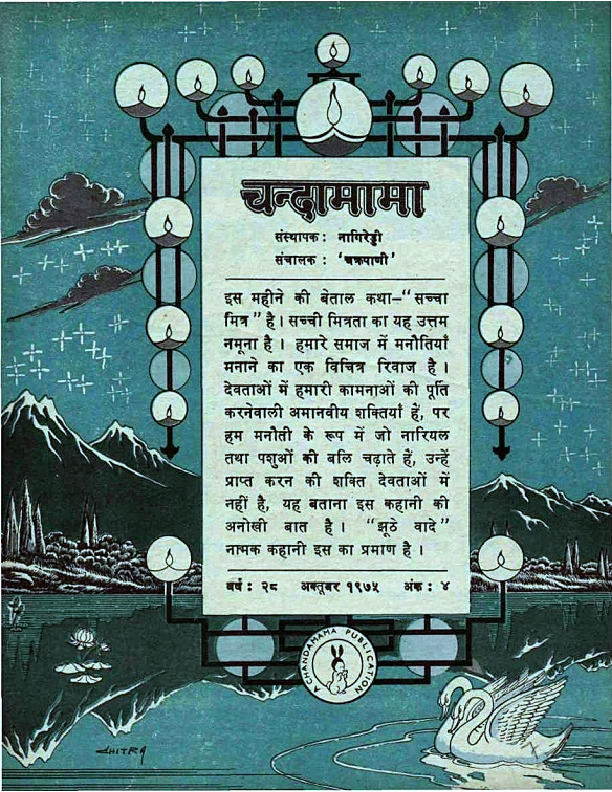 चन्दामामा
संस्थापक : नागिरेड्डी
संचालक : 'चक्रपाणी'
इस महीने की बेताल कथा–"सच्चा
मित्र" है। सच्ची मित्रता का यह उत्तम
नमूना है। हमारे समाज में मनौतियाँ
मनाने का एक विचित्र रिवाज है।
देवताओं में हमारी कामनाओं की पूर्ति
करनेवाली अमानवीय शक्तियाँ हैं, पर
हम मनौती के रूप में जो नारियल
तथा पशुओं की बलि चढ़ाते हैं, उन्हें
प्राप्त करन की शक्ति देवताओं में
नहीं है, यह बताना इस कहानी की
अनोखी बात है। "झूठे वादे"
नामक कहानी इस का प्रमाण है।
वर्ष : २८ अक्तूबर १९७५ अंक : ४
A CHANDAMAMA PUBLICATION
CHITRA